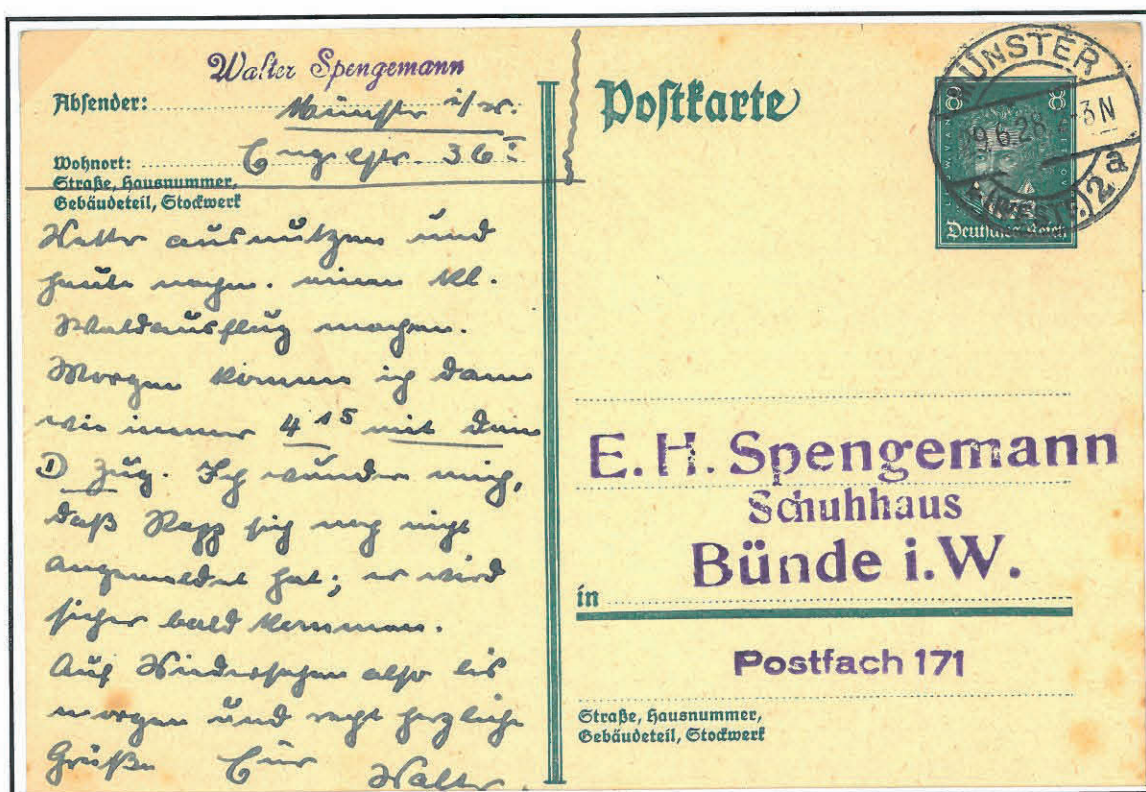 Walter Spengemann
Absender: Münster i/W.
Wohnort: Engelstr. 36 I
Straße, Hausnummer,
Gebäudeteil, Stockwerk
Wetter ausnutzen und
heute nachm. einen kl.
Waldausflug machen.
Morgen komme ich dann
wie immer 4 15 mit dem
D Zug. Ich wundre mich,
daß Rapp sich noch nicht
angemeldet hat; er wird
sicher bald kommen.
Auf Wiedersehen also bis
morgen und recht herzliche
Grüße Euer Walter.
Postkarte
8 8
Deutsches Reich
MÜNSTER
9.6.28. -3N
(WESTF.) 2a
E. H. Spengemann
Schuhhaus
Bünde i.W.
in
Postfach 171
Straße, Hausnummer,
Gebäudeteil, Stockwerk